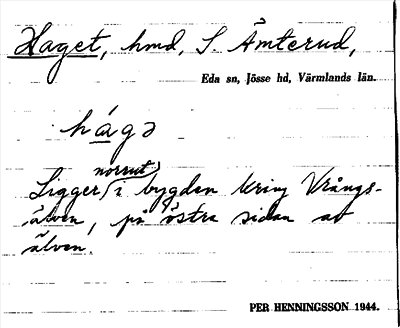 Haget, hmd, S. Ämterud,
Eda sn, Jösse hd, Värmlands län.
hágə
norrut
Ligger i bygden kring Vrångs-
älven, på östra sidan av
älven.
PER HENNINGSSON 1944.